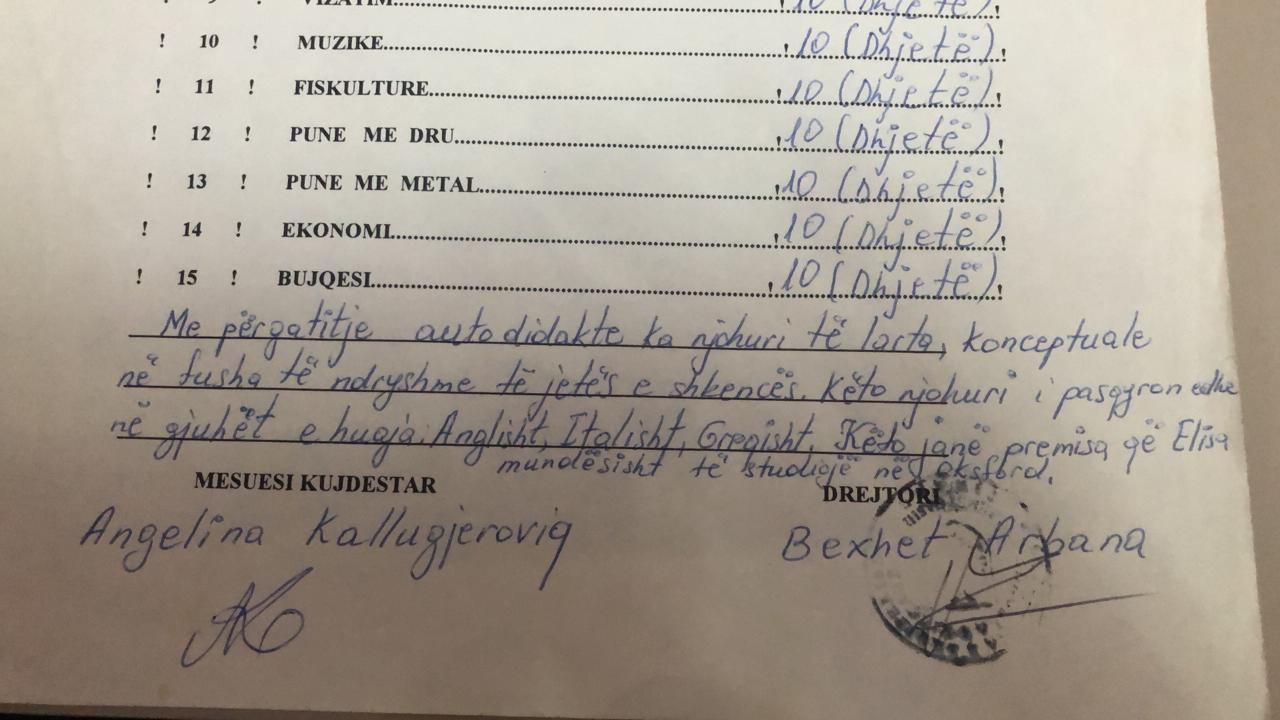 9 ! VIZATIM........!10 (Dhjetë)!
! 10 ! MUZIKE........!10 (Dhjetë)!
! 11 ! FISKULTURE........!10 (Dhjetë)!
! 12 ! PUNE ME DRU........!10 (Dhjetë)!
! 13 ! PUNE ME METAL........!10 (Dhjetë)!
! 14 ! EKONOMI........!10 (Dhjetë)!
! 15 ! BUJQESI........!10 (Dhjetë)!
Me përgatitje autodidakte ka njohuri të larta, konceptuale
në fusha të ndryshme të jetës e shkencës. Këto njohuri i pasqyron edhe
në gjuhët e huaja: Anglisht, Italisht, Greqisht. Këto janë premisa që Elisa
mundësisht të studiojë në Oksford.
MESUESI KUJDESTAR DREJTORI
Angelina Kallugjeroviq Bexhet Arbana
AK